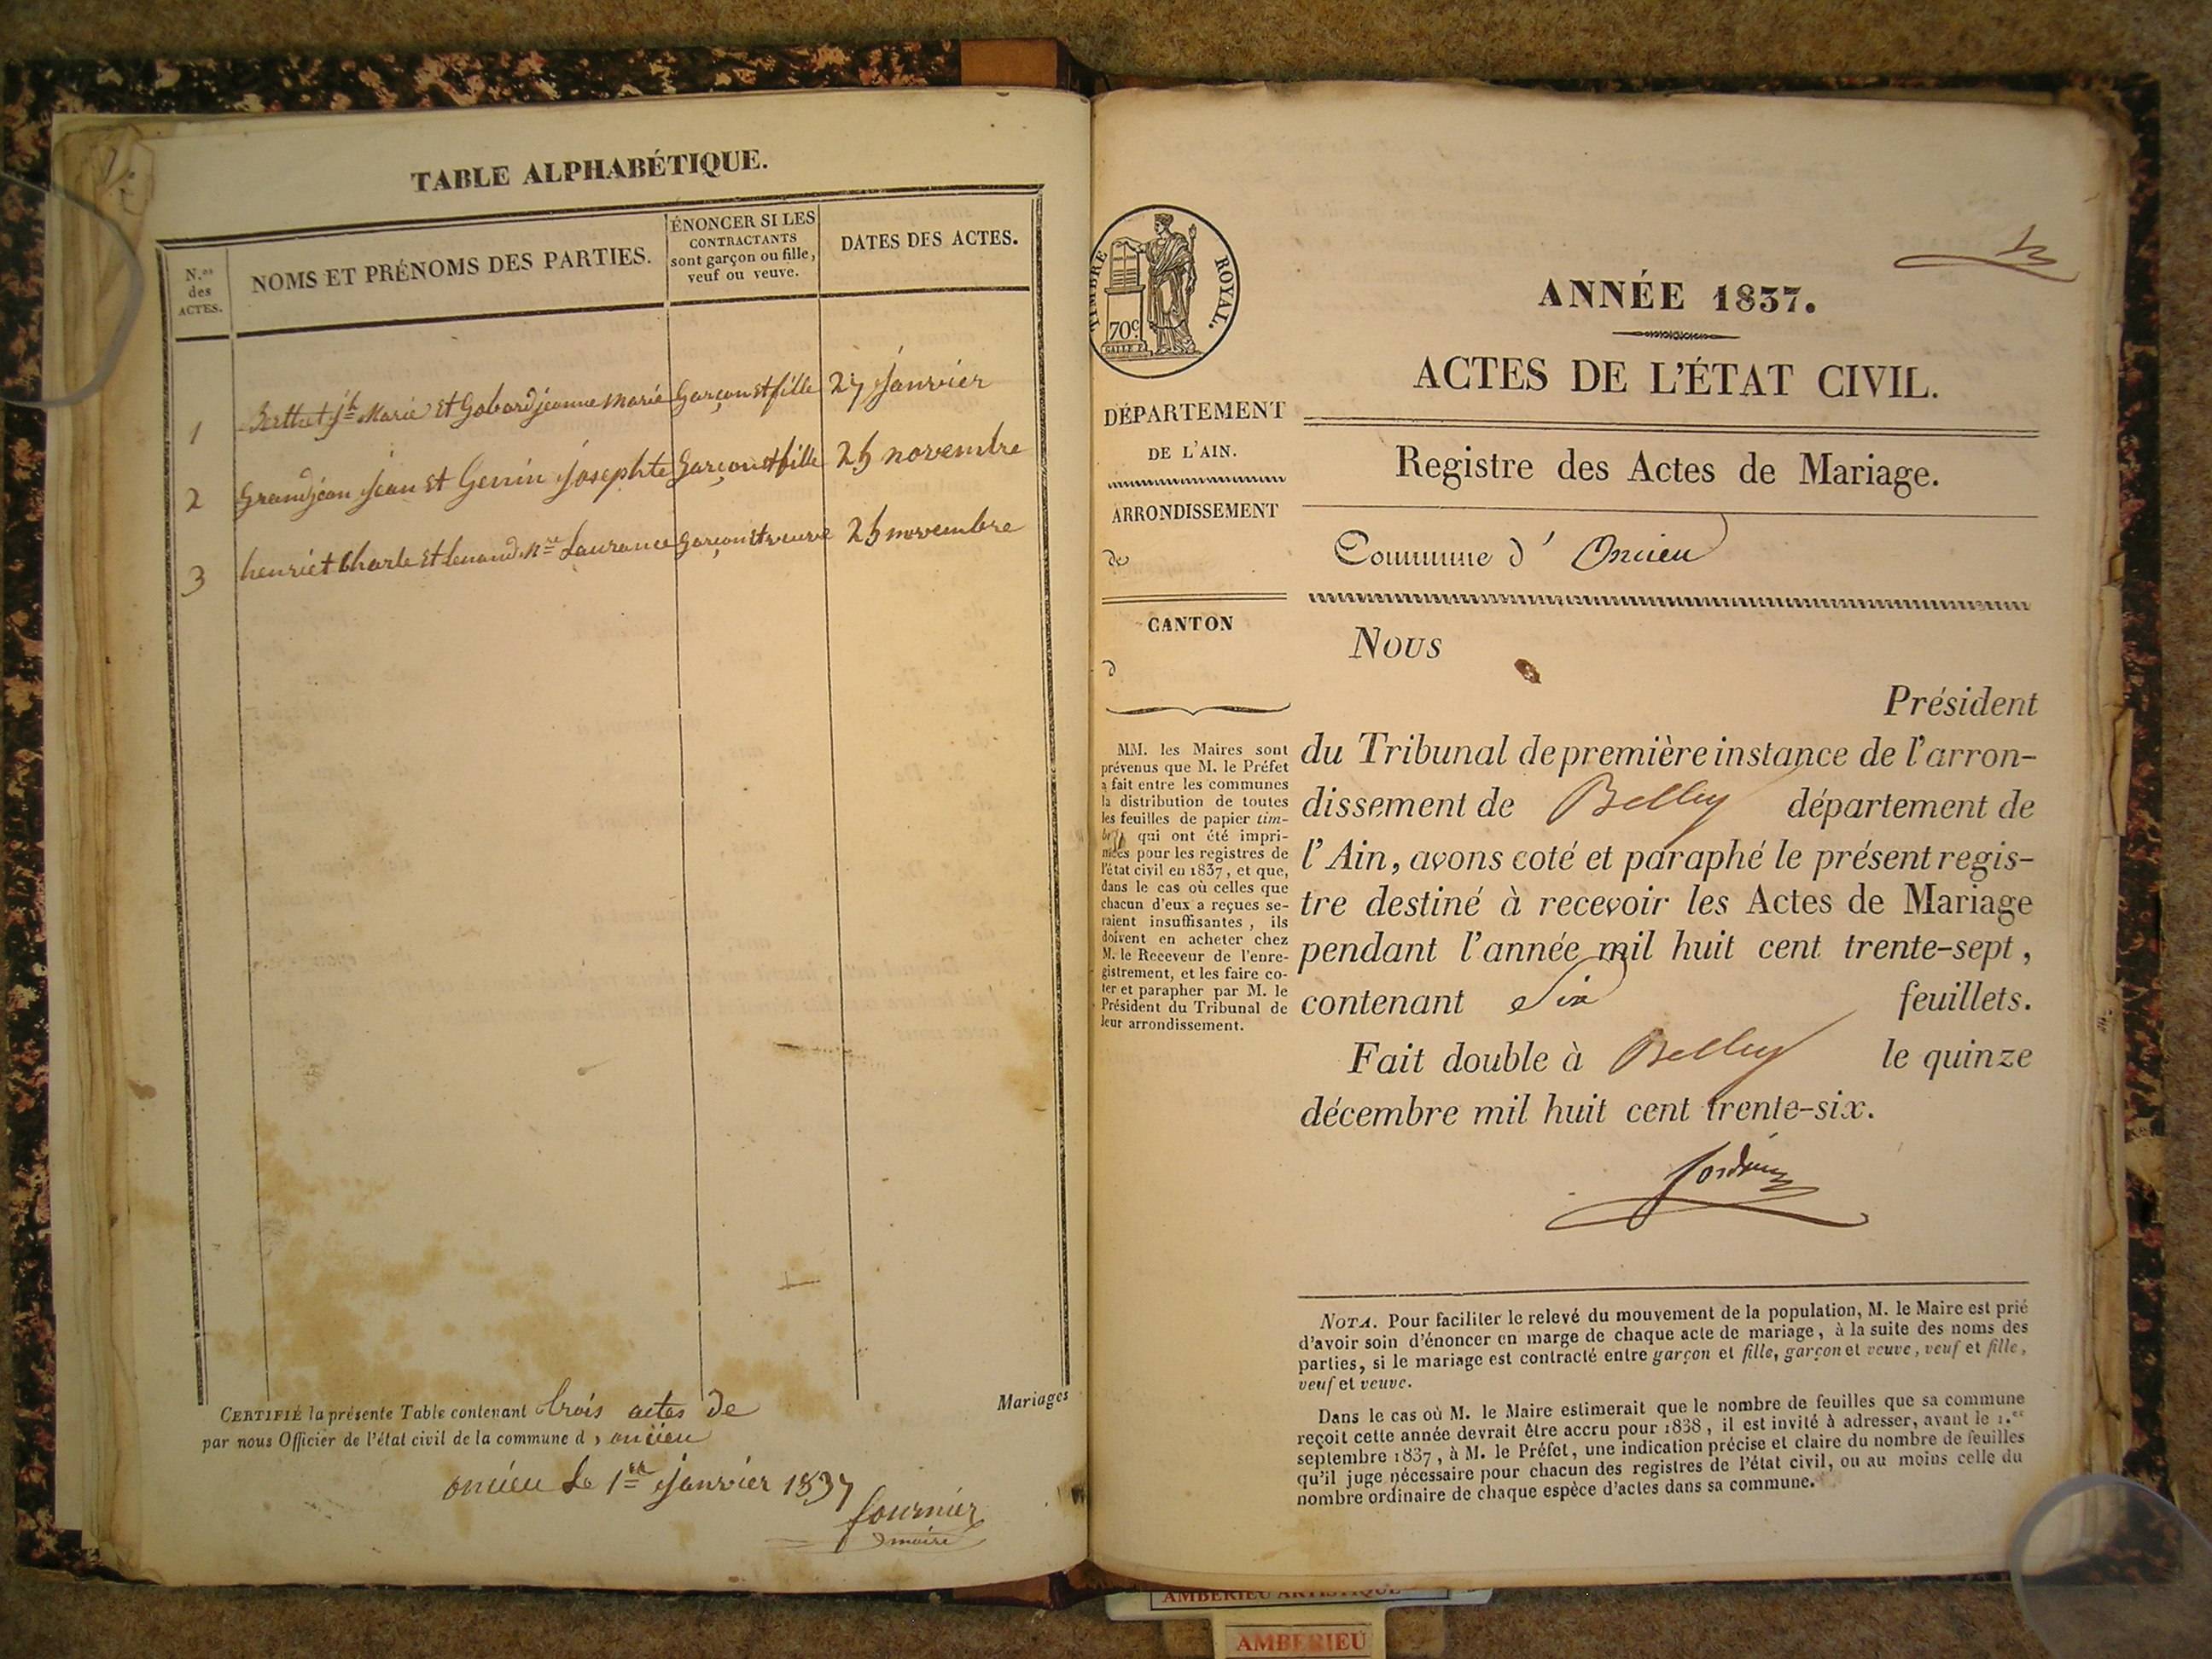 TABLE ALPHABÉTIQUE.
N.os des ACTES.
NOMS ET PRÉNOMS DES PARTIES.
ÉNONCER SI LES
CONTRACTANTS
sont garçon ou fille,
veuf ou veuve.
DATES DES ACTES.
1 Berthet jh Marie et Gobard jeanne Marie Garçon et fille 27 janvier
2 Grandjean Jean et Genin Josephte Garçon et fille 25 novembre
3 henriet Charle et Laurance garçon et veuve 25 novembre
CERTIFIÉ la présente Table contenant trois actes de Mariages
par nous Officier de l'état civil de la commune d, oncieu
oncieu Le 1er janvier 1837
fournier
maire
TIMBRE ROYAL.
70c
GALLE F.
DÉPARTEMENT
DE L'AIN.
ARRONDISSEMENT
de
CANTON
d
MM. les Maires sont
prévenus que M. le Préfet
a fait entre les communes
la distribution de toutes
les feuilles de papier tim-
bré qui ont été impri-
mées pour les registres de
l'état civil en 1837, et que,
dans le cas où celles que
chacun d'eux a reçues se-
raient insuffisantes, ils
doivent en acheter chez
M. le Receveur de l'enre-
gistrement, et les faire co-
ter et parapher par M. le
Président du Tribunal de
leur arrondissement.
ANNÉE 1837.
ACTES DE L'ÉTAT CIVIL.
Registre des Actes de Mariage.
Commune d' Oncieu
Nous
Président
du Tribunal de première instance de l'arron-
dissement de Belley département de
l'Ain, avons coté et paraphé le présent regis-
tre destiné à recevoir les Actes de Mariage
pendant l'année mil huit cent trente-sept,
contenant Six feuillets.
Fait double à Belley le quinze
décembre mil huit cent trente-six.
NOTA. Pour faciliter le relevé du mouvement de la population, M. le Maire est prié
d'avoir soin d'énoncer en marge de chaque acte de mariage, à la suite des noms des
parties, si le mariage est contracté entre garçon et fille, garçon et veuve, veuf et fille,
veuf et veuve.
Dans le cas où M. le Maire estimerait que le nombre de feuilles que sa commune
reçoit cette année devrait être accru pour 1838, il est invité à adresser, avant le 1.er
septembre 1837, à M. le Préfet, une indication précise et claire du nombre de feuilles
qu'il juge nécessaire pour chacun des registres de l'état civil, ou au moins celle du
nombre ordinaire de chaque espèce d'actes dans sa commune.
AMBERIEU ARTISTIQUE
AMBERIEU